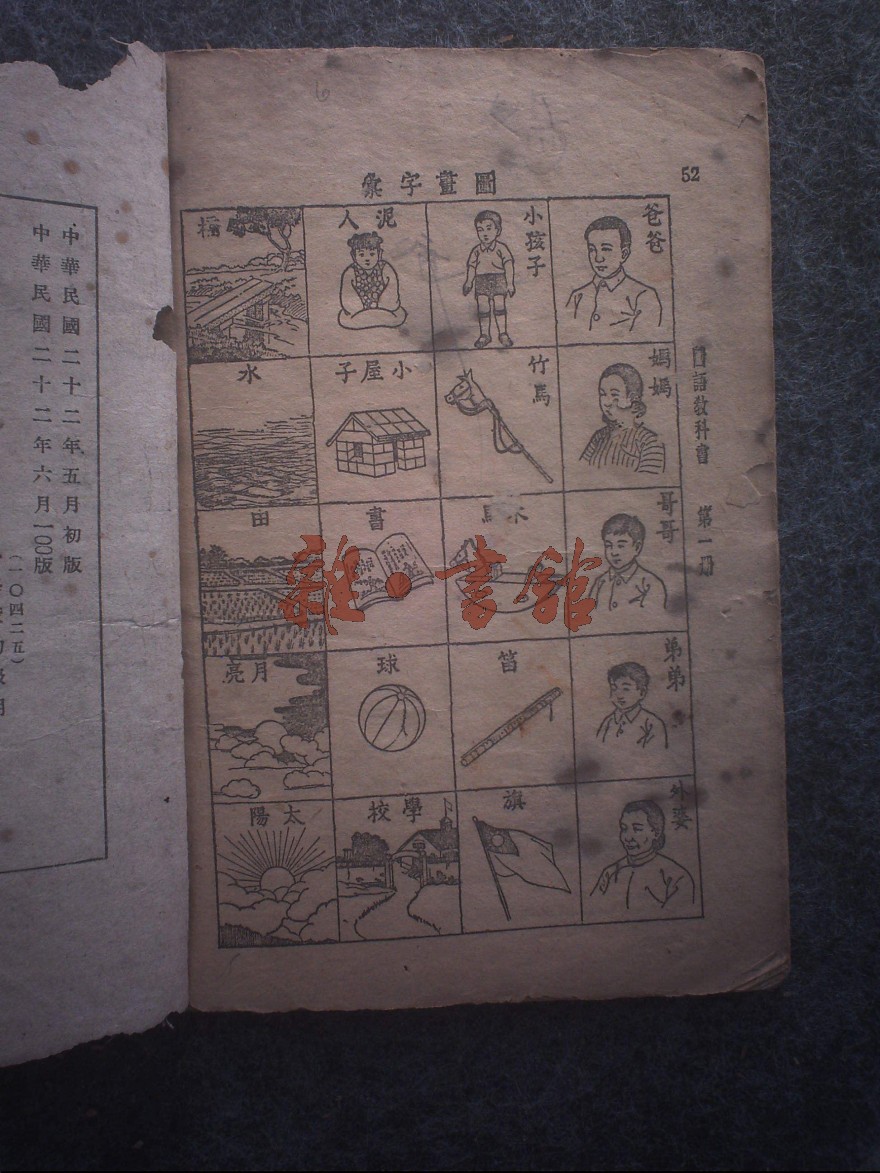 52
圖畫字彙
國語教科書 第一册
爸爸
小孩子
泥人
橋
媽媽
竹馬
小屋子
水
哥哥
木馬
書
田
弟弟
笛
球
月亮
外婆
旗
學校
太陽
中華民國二十二年五月初版
中華民國二十二年六月一〇〇版
(一〇四二五)
雜·書館